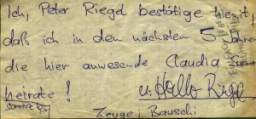 Ich, Peter Riegel bestätige hiermit,
daß ich in den nächsten 5 Jahren
die hier anwesende Claudia
heirate!
Zeuge: Bauschi